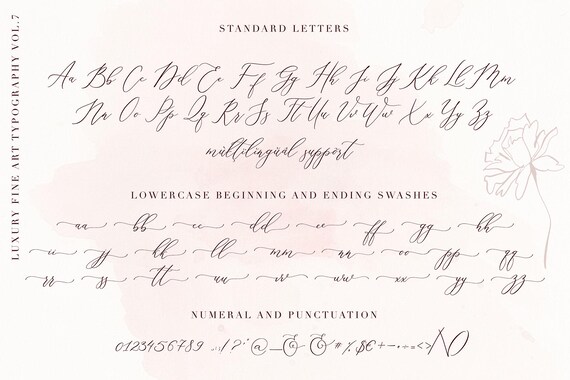 LUXURY FINE ART TYPOGRAPHY VOL.7
STANDARD LETTERS
Aa Bb Cc Dd Ee Ff Gg Hh Ii Jj Kk Ll Mm
Nn Oo Pp Qq Rr Ss Tt Uu Vv Ww Xx Yy Zz
multilingual support
LOWERCASE BEGINNING AND ENDING SWASHES
aa bb cc dd ee ff gg hh
ii jj kk ll mm nn oo pp qq
rr ss tt uu vv ww xx yy zz
NUMERAL AND PUNCTUATION
0123456789 .,! ? : @ _ & & # % $ € + - · ÷ = < > / \ ()